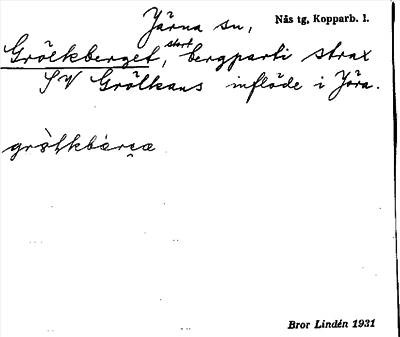 Järna sn, Nås tg, Kopparb. l.
Grölkberget, stort bergparti strax
SV Grölkans inflöde i Jöra.
Bror Lindén 1931